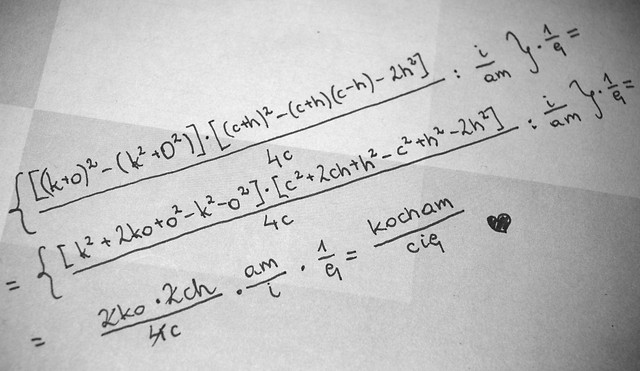 {[(k+o)²-(k²+o²)]·[(c+h)²-(c+h)(c-h)-2h²] / 4c : i/am}·1/ę =
= {[k²+2ko+o²-k²-o²]·[c²+2ch+h²-c²+h²-2h²] / 4c : i/am}·1/ę =
= 2ko·2ch / 4c · am/i · 1/ę = kocham / cię